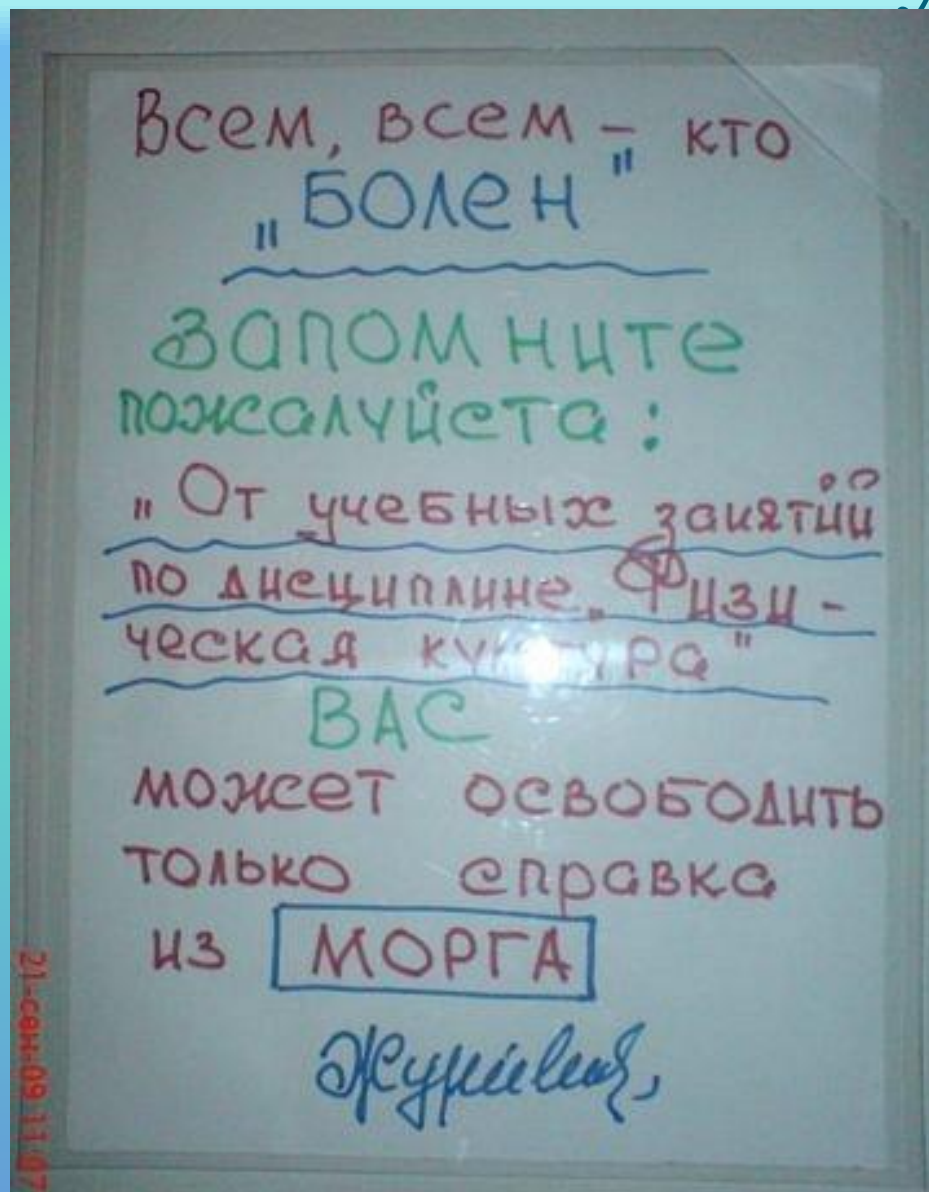 Всем, всем – кто
„БОЛЕН"
Запомните
пожалуйста:
„От учебных занятий
по дисциплине „Физи-
ческая культура"
ВАС
может освободить
только справка
из МОРГА
21-сен-09 11:07